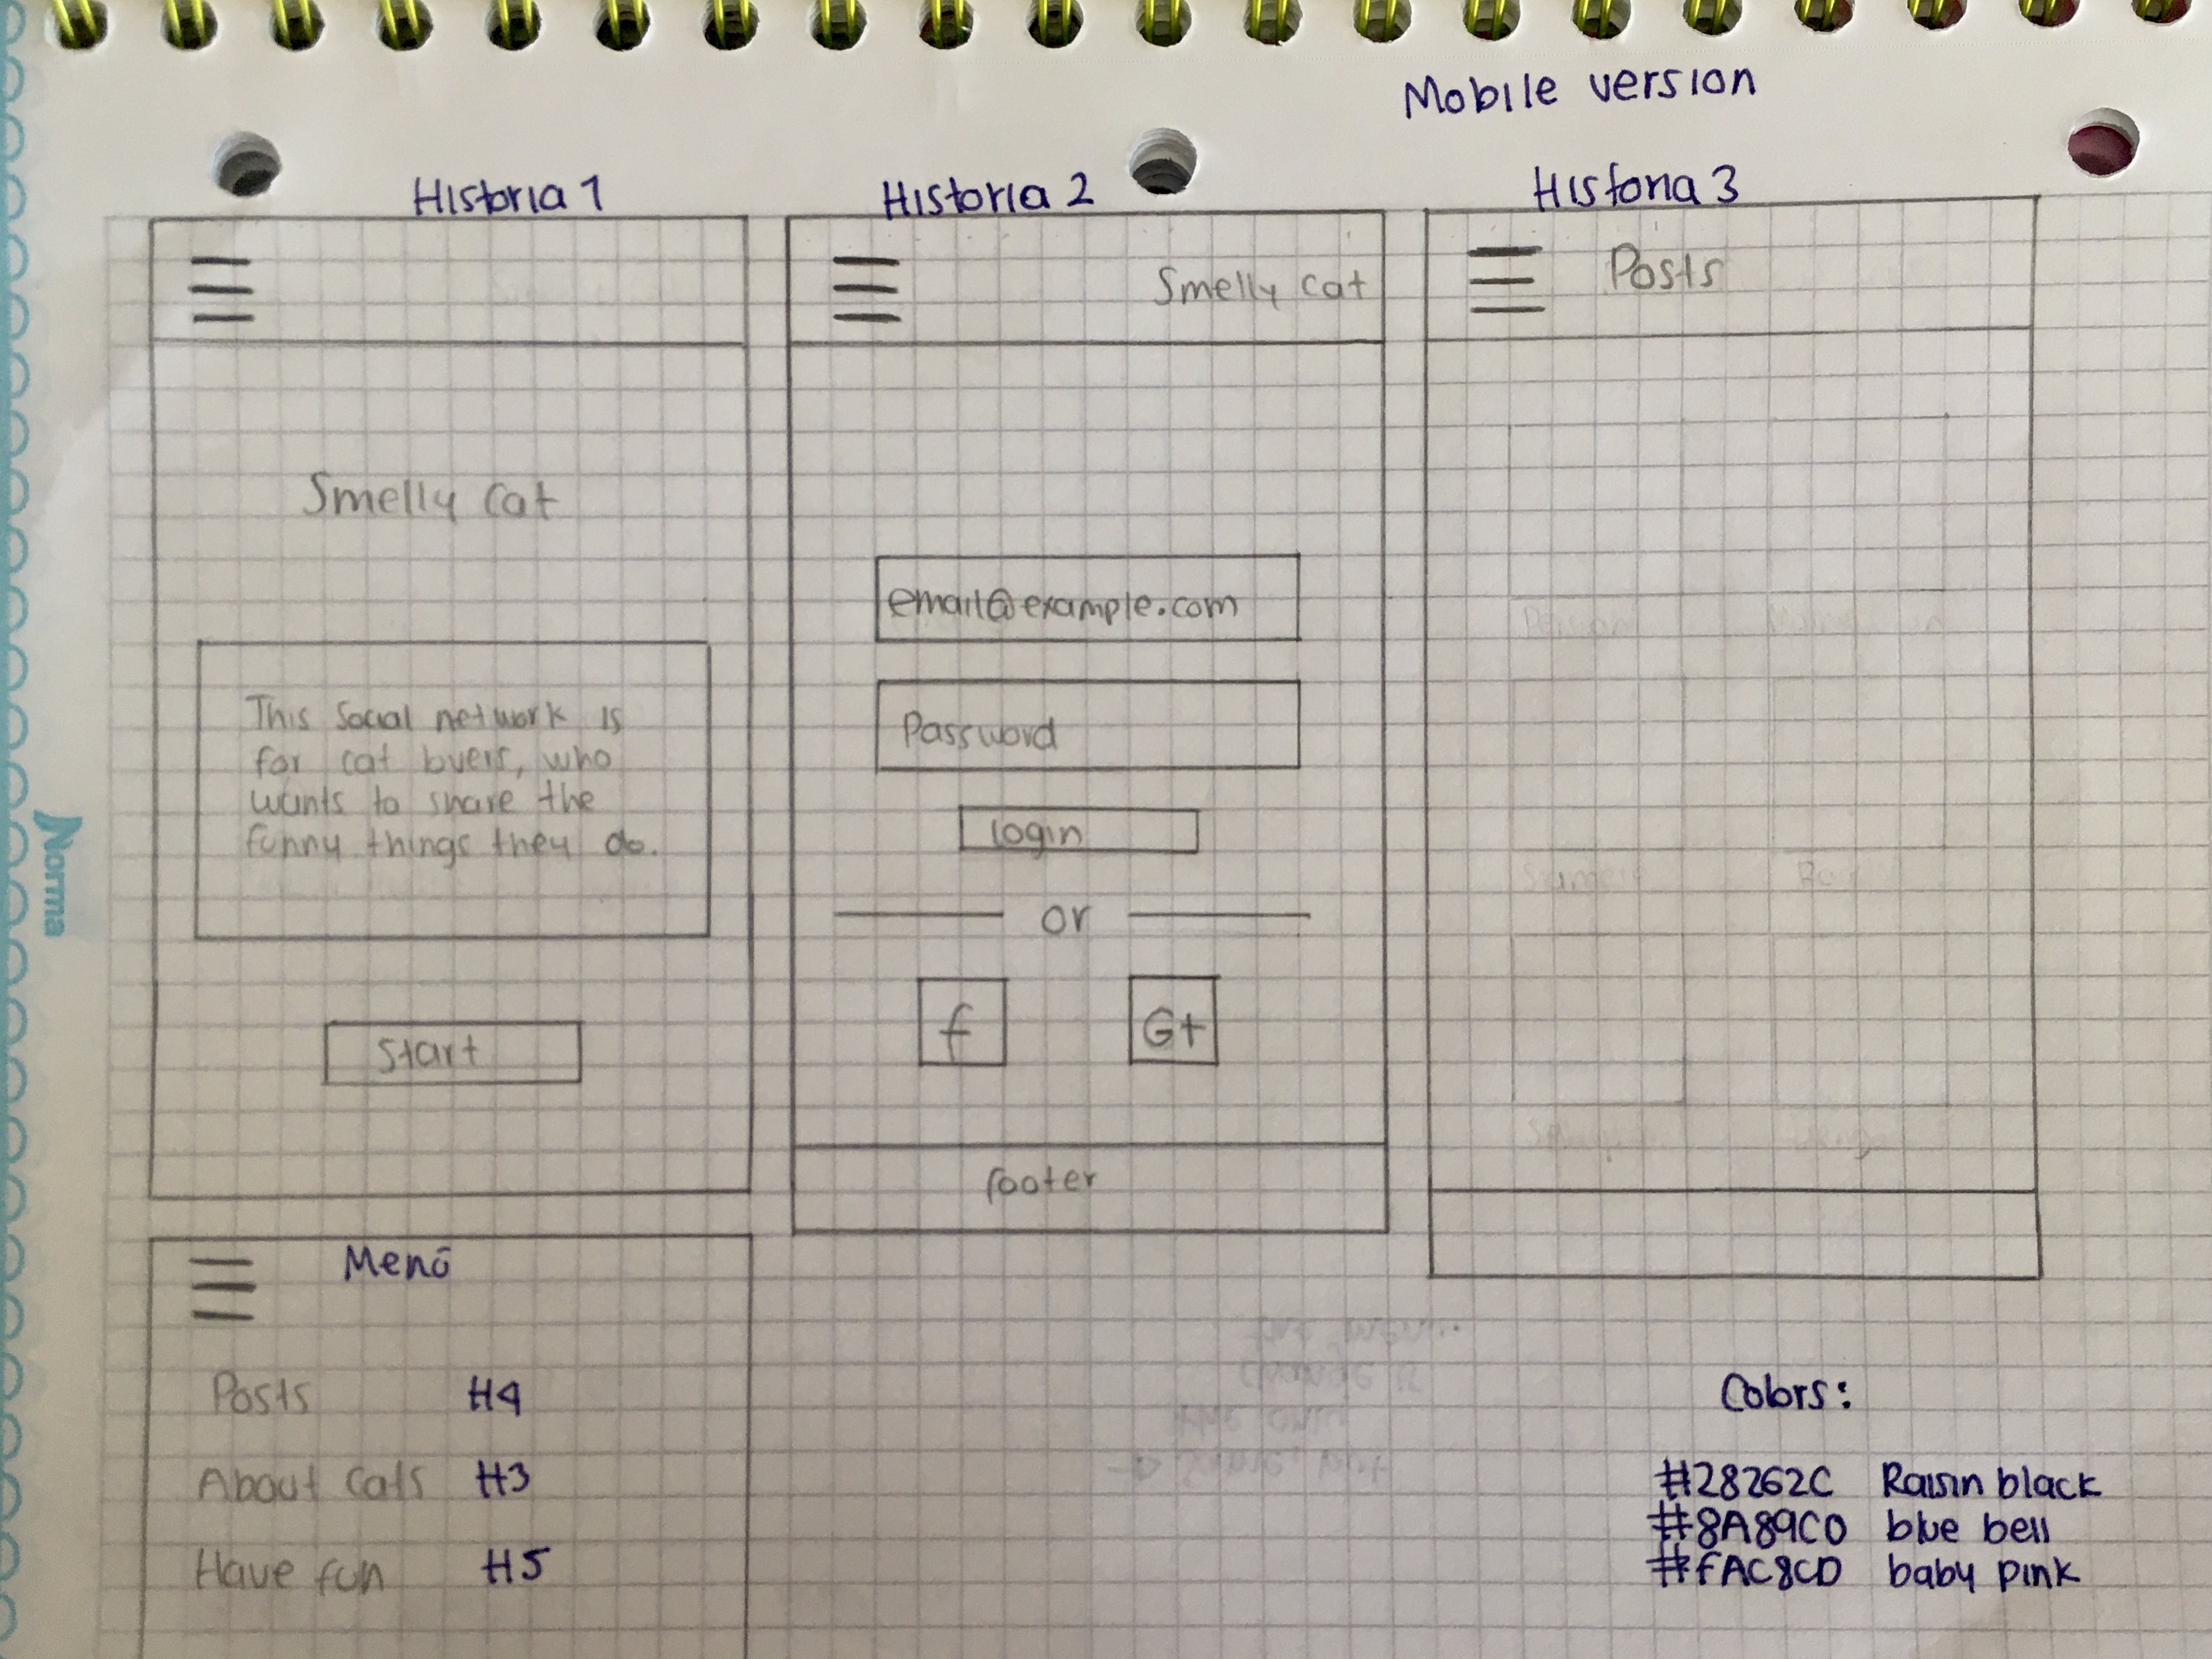 Mobile version
Historia 1
Historia 2
Historia 3
Smelly cat
This Social network is
for cat lovers, who
wants to share the
funny things they do.
Start
Smelly cat
email@example.com
Password
login
or
f
G+
footer
Posts
Menú
Posts H4
About Cats H3
Have fun H5
Colors:
#28262C Raisin black
#8A89C0 blue bell
#FAC8CD baby pink
Norma